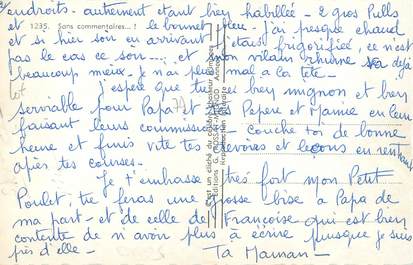 endroits - autrement étant bien habillée - 2 gros Pulls
et le bonnet bleu - j'ai presque chaud
1235. Sans commentaires... !
et si hier soir en arrivant j'étais frigorifiée, ce n'est
pas le cas ce soir... et mon vilain rhume va déjà
beaucoup mieux - Je n'ai plus mal à la tête -
J'espère que tu es bien mignon et bien
serviable pour Papa et les Pépère et Mamie en leur
faisant leurs commissions - couche toi de bonne
heure et finis vite tes devoirs et leçons en rentrant
après tes courses.
Je t'embrasse très fort mon Petit
Poulet, tu feras une grosse bise à Papa de
ma part - et de celle de Françoise qui est bien
contente de n'avoir plus à écrire puisque je suis
près d'elle - Ta Maman -